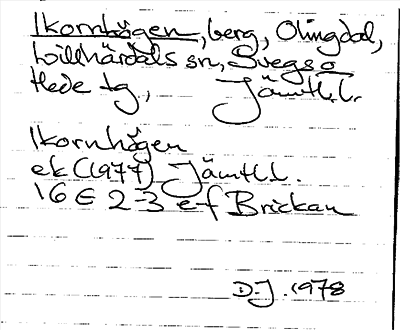 Ikornhögen, berg, Olingdal,
Lillhärdals sn, Svegs o
Hede tg, Jämtl.l.
Ikornhögen
ek (1977) Jämtl.l.
16 E 2-3 e f Brickan
D.J. 1978